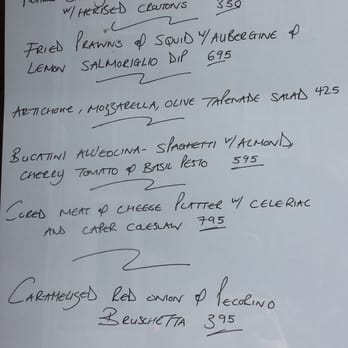 W/ HERBED CROUTONS 350
FRIED PRAWNS & SQUID W/ AUBERGINE &
LEMON SALMORIGLIO DIP 695
ARTICHOKE, MOZZARELLA, OLIVE TAPENADE SALAD 425
BUCATINI ALL'EOLINA - SPAGHETTI W/ ALMOND,
CHERRY TOMATO & BASIL PESTO 595
CURED MEAT & CHEESE PLATTER W/ CELERIAC
AND CAPER COLESLAW 795
CARAMELISED RED ONION & PECORINO
BRUSCHETTA 395